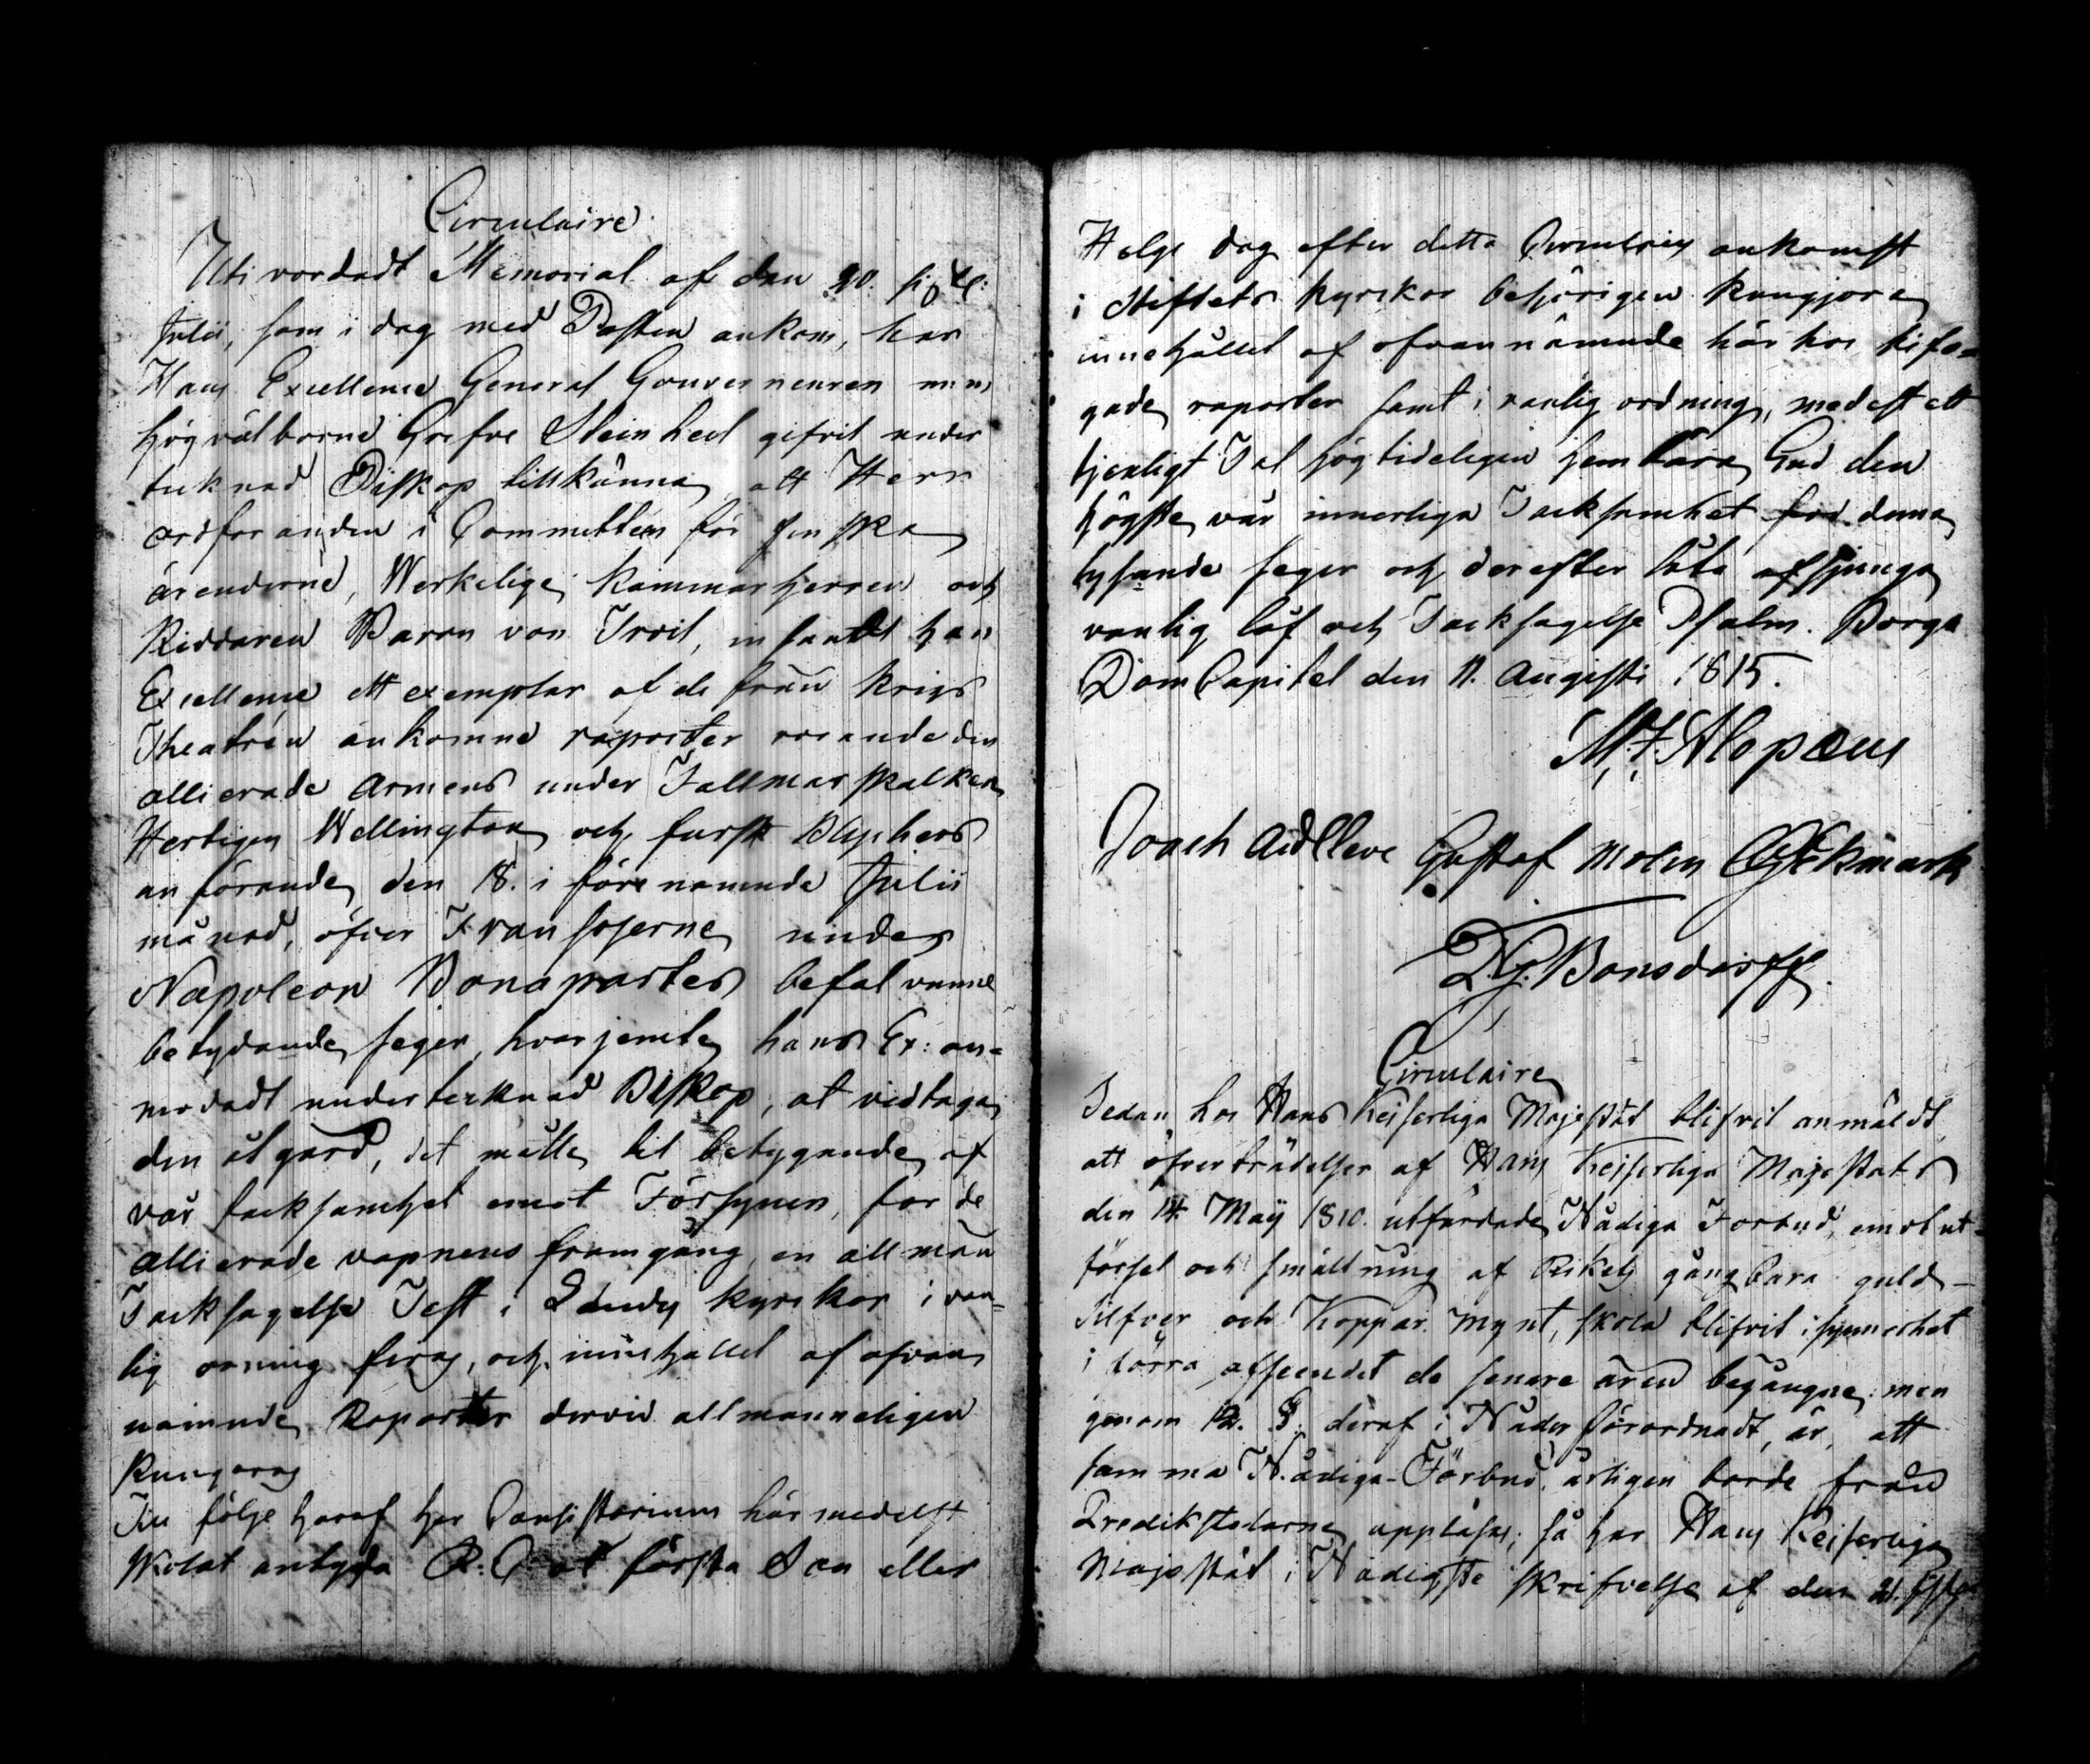 Circulaire
Uti vordadt Memorial af den 20. sistl:
Julii, som i dag med Posten ankom, har
Hans Excellence General Gouverneuren m:m:
högvälborne Grefve Steinheil gifvit under
tecknad Biskop tillkänna, att Herr
ordforanden i Committen för finska
ärenderne, Werkelige Kammarherren och
Riddaren Baron von Troil, insandt hans
Excellence ett exemplar af de från krigs
Theatren ankomne raporter rorande den
allierade Armens under Faltmarskalken
Hertigen Wellington och furst Blychers
anförande, den 18. i förenamnde Julii
månad, öfver Fransoserne under
Napoleon Bonapartes befal vunne
betydande seger, hvarjemte hans Ex: an=
modadt undertecknad Biskop, at vidtaga
den åtgard, det måtte til betygande af
vår tacksamhet emot Försynen, for de
allierade vapnens framgång en allmän
Tacksagelse Fest i Landets kyrckor i van=
lig orning firas, och innehallet af ofvan
nämnde Raporter dervid allmanneligen
kungoras
Til följe haraf har Consistorium härmedelst
skolat antyda R: C: at första Son eller
Helge dag efter detta Circulairs ankomst
i Stiftets kyrckor behörigen kungjora
innehållet af ofvannämnde här hos bifo=
gade raporter samt i vanlig ordning, medelst ett
tjenligt Tal högtideligen hembära Gud den
högste vår innerliga Tacksamhet for denna
lysande seger och derefter låta afsjunga
vanlig låf och Tacksagelse Psalm. Borga
DomCapitel den 11. Augusti 1815.
M. J. Alopæus
Joach Ad Cleve Gustaf Molin C G Ekmark
D. G. Bonsdorff.
Circulaire
Sedan hos Hans Keiserliga Majestät blifvit anmäldt,
att öfverträdelser af Hans Keiserliga Majestäts
den 14. Maÿ 1810. utfärdade Nådiga Forbud, emot ut-
försel och smältning af Rikets gångbara guld-
Silfver och Koppar Mynt, skola blifvit i synnerhet
i förra afseendet de senare åren begångne; men
genom 12. §. deraf i Nåder förordnadt, är, att
samma Nådiga Förbud, årligen borde från
Predikstolarne uppläsas; så har Hans Keiserliga
Majestät i Nådigste skrifvelse af den 21. sistl.